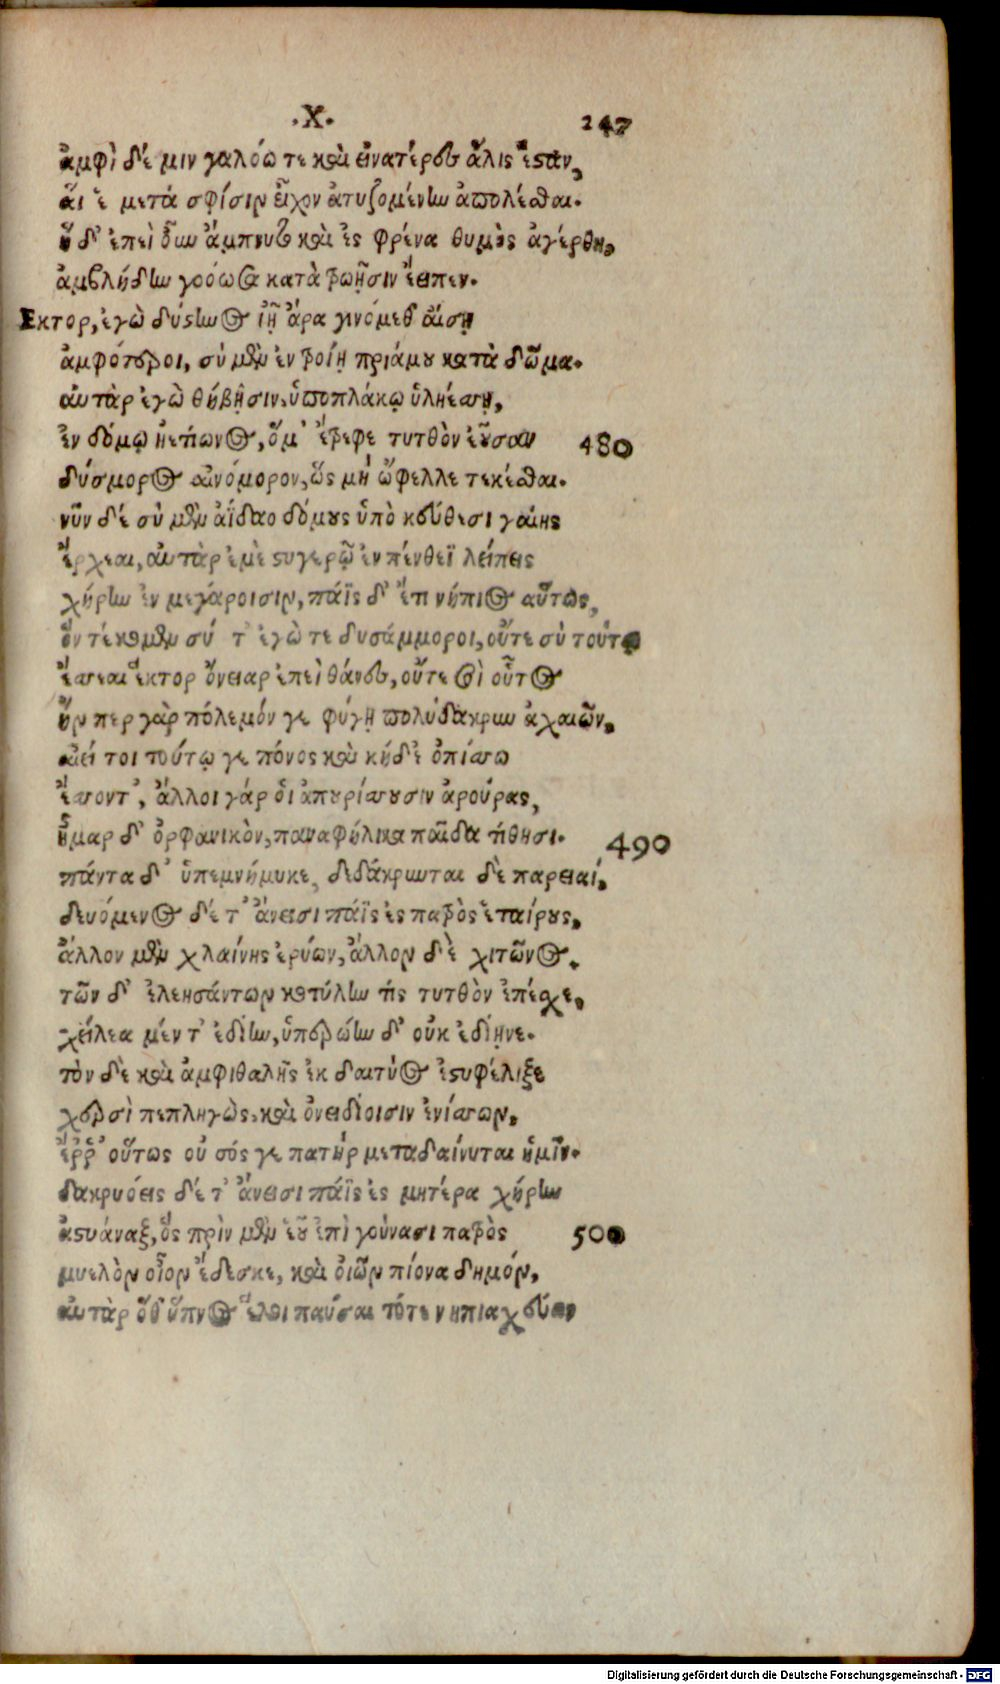 .X. 247
ἀμφὶ δέ μιν γαλόω τε καὶ εἰνατέρες ἅλις ἔσαν,
αἵ ἑ μετὰ σφίσιν εἶχον ἀτυζομένην ἀπολέσθαι.
ἡ δ' ἐπεὶ οὖν ἄμπνυτο καὶ ἐς φρένα θυμὸς ἀγέρθη,
ἀμβλήδην γοόωσα κατὰ τρωῆσιν ἔειπεν.
Ἕκτορ, ἐγὼ δύστηνος ἰῇ ἄρα γινόμεθ' αἴσῃ
ἀμφότεροι, σὺ μὲν ἐν τροίῃ πριάμου κατὰ δῶμα.
αὐτὰρ ἐγὼ θήβῃσιν, ὑποπλάκῳ ὑληέσσῃ,
ἐν δόμῳ ἠετίωνος, ὅ μ' ἔτρεφε τυτθὸν ἐοῦσαν 480
δύσμορος αἰνόμορον, ὡς μὴ ὤφελλε τεκέσθαι.
νῦν δὲ σὺ μὲν ἀΐδαο δόμους ὑπὸ κεύθεσι γαίης
ἔρχεαι, αὐτὰρ ἐμὲ στυγερῷ ἐν πένθεϊ λείπεις
χήρην ἐν μεγάροισιν, πάϊς δ' ἔτι νήπιος αὕτως,
ὃν τέκομεν σύ τ' ἐγώ τε δυσάμμοροι, οὔτε σὺ τούτῳ
ἔσσεαι ἕκτορ ὄνειαρ ἐπεὶ θάνες, οὔτε σοὶ οὗτος
ἤν περ γὰρ πόλεμόν γε φύγῃ πολύδακρυν ἀχαιῶν,
αἰεί τοι τούτῳ γε πόνος καὶ κήδε' ὀπίσσω
ἔσσοντ', ἄλλοι γάρ οἱ ἀπουρίσσουσιν ἀρούρας,
ἦμαρ δ' ὀρφανικὸν, παναφήλικα παῖδα τίθησι. 490
πάντα δ' ὑπεμνήμυκε, δεδάκρυνται δὲ παρειαί,
δευόμενος δέ τ' ἄνεισι πάϊς ἐς πατρὸς ἑταίρους,
ἄλλον μὲν χλαίνης ἐρύων, ἄλλον δὲ χιτῶνος.
τῶν δ' ἐλεησάντων κοτύλην τὶς τυτθὸν ἐπέσχε,
χείλεα μέν τ' ἐδίην, ὑπερώην δ' οὐκ ἐδίηνε.
τὸν δὲ καὶ ἀμφιθαλὴς ἐκ δαιτύος ἐστυφέλιξε
χερσὶ πεπληγὼς, καὶ ὀνειδίοισιν ἐνίσσων,
ἔρρ' οὕτως οὐ σός γε πατὴρ μεταδαίνυται ἡμῖν.
δακρυόεις δέ τ' ἄνεισι πάϊς ἐς μητέρα χήρην
ἀστυάναξ, ὃς πρὶν μὲν ἑοῦ ἐπὶ γούνασι πατρὸς 500
μυελὸν οἶον ἔδεσκε, καὶ οἰῶν πίονα δημόν,
αὐτὰρ ὅθ' ὕπνος ἕλοι παύσαι τότε νηπιαχεύων
Digitalisierung gefördert durch die Deutsche Forschungsgemeinschaft - DFG